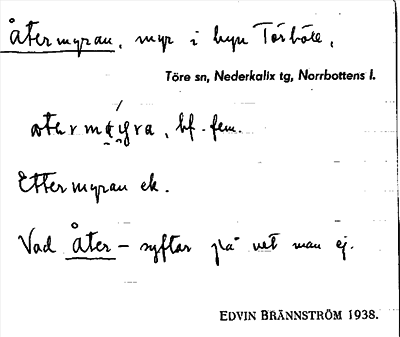 Återmyran, myr i byn Törböle,
Töre sn, Nederkalix tg, Norrbottens l.
bf. fem.
Ettermyran ek.
Vad åter – syftar på vet man ej.
EDVIN BRÄNNSTRÖM 1938.